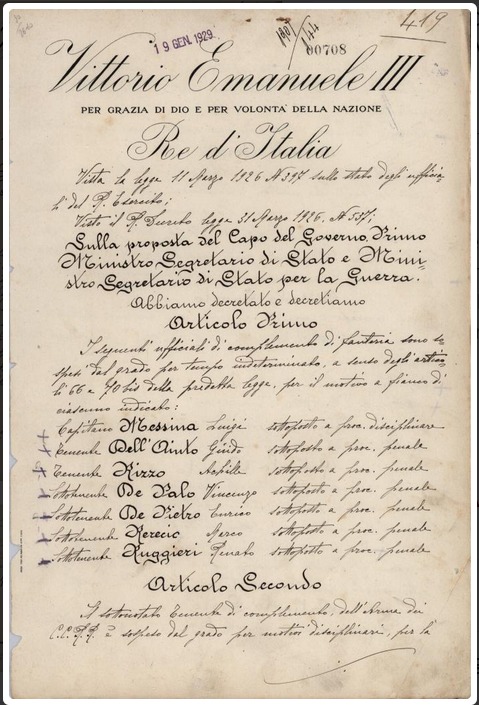 419
19 GEN. 1929
1901/144
00708
Vittorio Emanuele III
PER GRAZIA DI DIO E PER VOLONTA' DELLA NAZIONE
Re d'Italia
Vista la legge 11 Marzo 1926 N 397 sullo stato degli ufficia-
li del R. Esercito;
Visto il R. Decreto legge 31 Marzo 1926, N 537;
Sulla proposta del Capo del Governo, Primo
Ministro Segretario di Stato e Mini-
stro Segretario di Stato per la Guerra.
Abbiamo decretato e decretiamo
Articolo Primo
I seguenti ufficiali di complemento di fanteria sono so-
spesi dal grado per tempo indeterminato, a senso degli artico-
li 66 e 70 bis della predetta legge, per il motivo a fianco di
ciascuno indicato:
Capitano Messina Luigi sottoposto a proc. disciplinare
Tenente Dell'Aiuto Guido sottoposto a proc. penale
Tenente Rizzo Achille sottoposto a proc. penale
Sottotenente De Palo Vincenzo sottoposto a proc. penale
Sottotenente De Pietro Enrico sottoposto a proc. penale
Sottotenente Marco sottoposto a proc. penale
Sottotenente Ruggieri Renato sottoposto a proc. penale
Articolo Secondo
Il sottonotato Tenente di complemento, dell'Arma dei
C.C.R.R. è sospeso dal grado per motivi disciplinari, per la